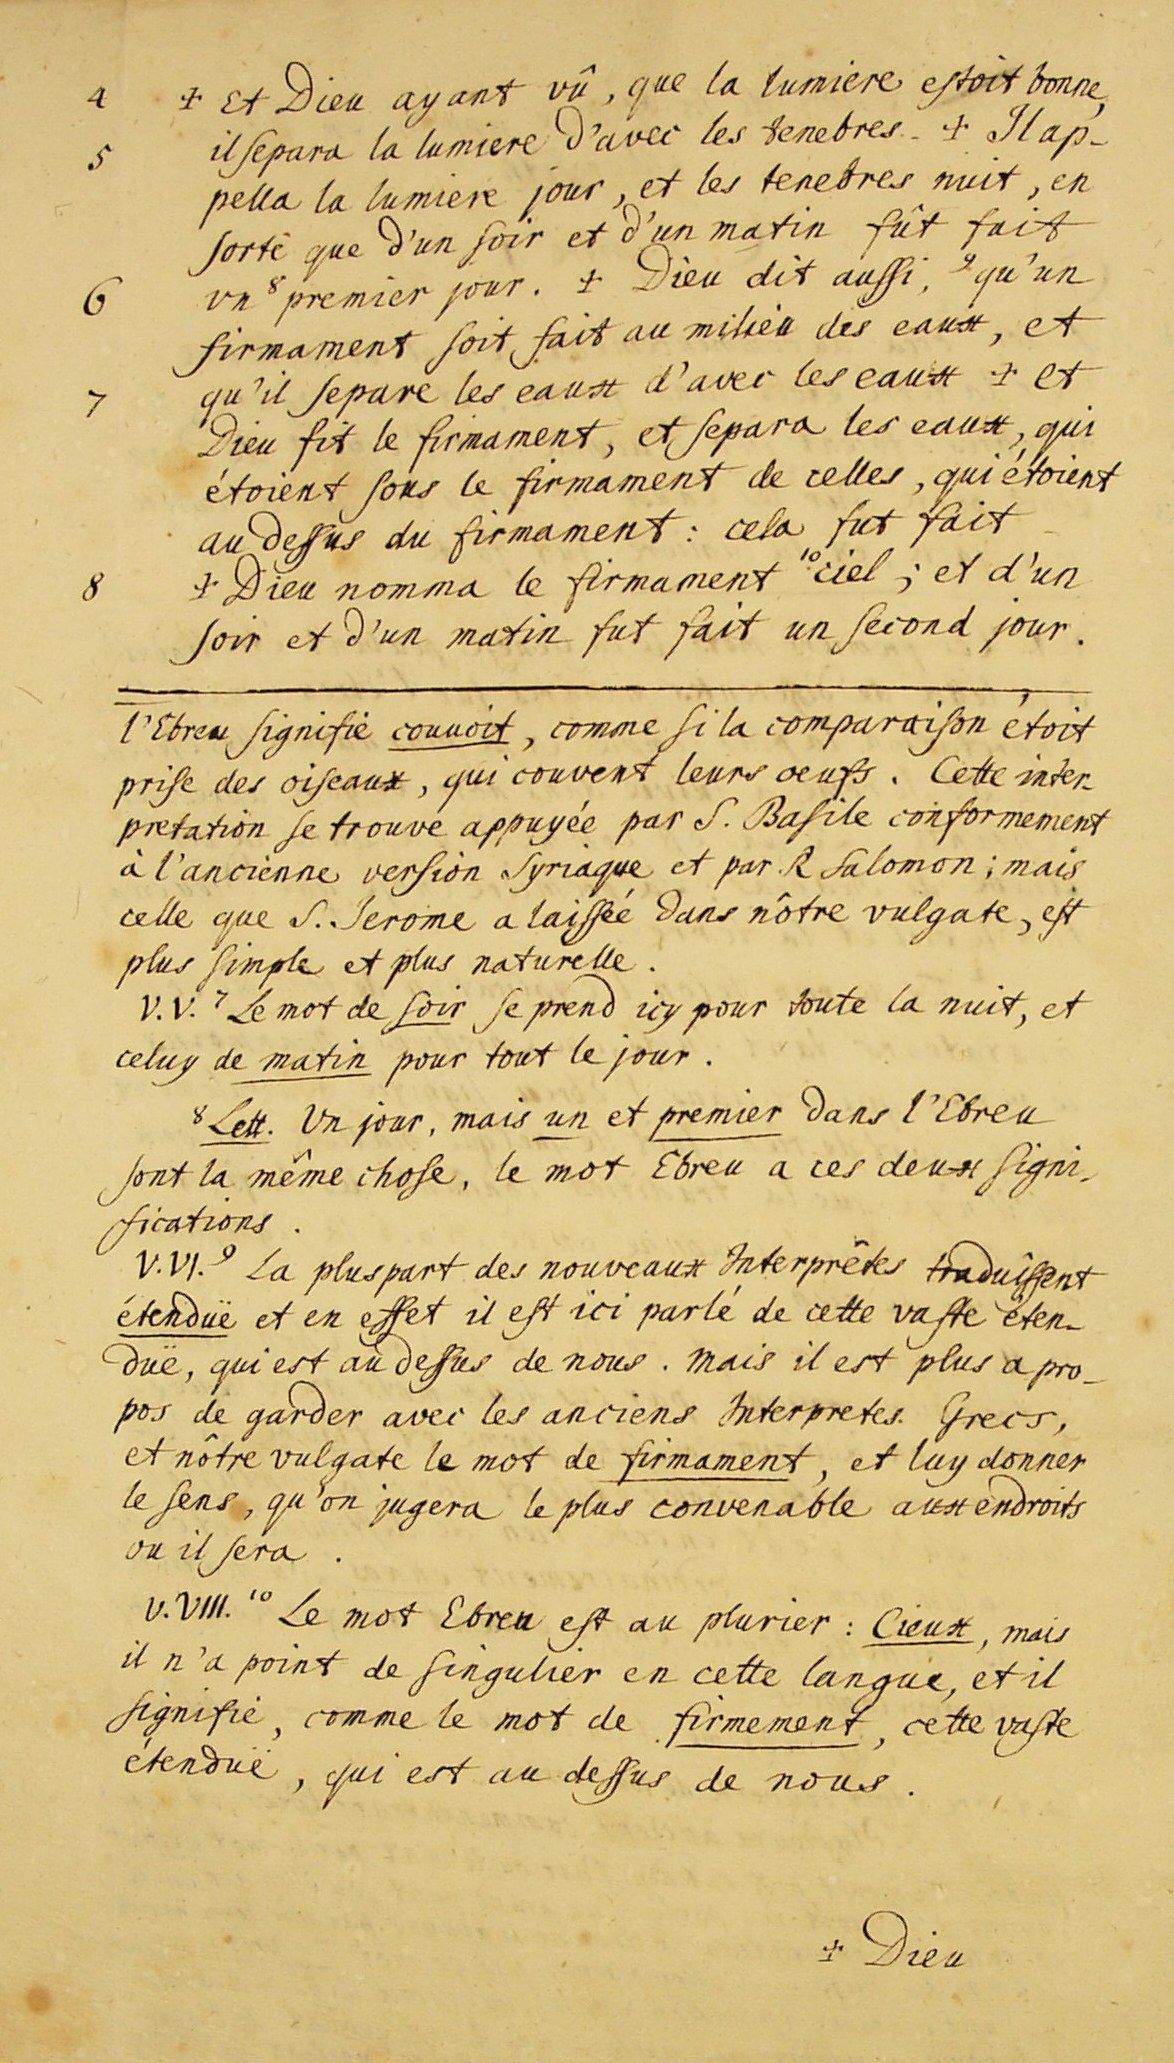 4 ☩ Et Dieu ayant vû, que la lumiere estoit bonne,
5 il separa la lumiere d'avec les tenebres. ☩ Il ap-
pella la lumiere jour, et les tenebres nuit, en
sorte que d'un soir et d'un matin fût fait
6 vn ⁸ premier jour. ☩ Dieu dit aussi, ⁹ qu'un
firmament soit fait au milieu des eaux, et
7 qu'il separe les eaux d'avec les eaux ☩ et
Dieu fit le firmament, et separa les eaux, qui
étoient sous le firmament de celles, qui étoient
au dessus du firmament : cela fut fait
8 ☩ Dieu nomma le firmament ¹⁰ ciel ; et d'un
soir et d'un matin fut fait un second jour.
l'Ebreu signifie couvoit, comme si la comparaison étoit
prise des oiseaux, qui couvent leurs oeufs. Cette inter-
pretation se trouve appuyée par S. Basile conformement
à l'ancienne version Syriaque et par R Salomon ; mais
celle que S. Jerome a laissée dans nôtre vulgate, est
plus simple et plus naturelle.
V.V. ⁷ Le mot de soir se prend icy pour toute la nuit, et
celuy de matin pour tout le jour.
⁸ Lett. Un jour, mais un et premier dans l'Ebreu
sont la même chose, le mot Ebreu a ces deux signi-
fications.
V.VI. ⁹ La pluspart des nouveaux Interprêtes traduissent
étenduë et en effet il est ici parlé de cette vaste éten-
duë, qui est au dessus de nous. Mais il est plus a pro-
pos de garder avec les anciens Interpretes Grecs,
et nôtre vulgate le mot de firmament, et luy donner
le sens, qu'on jugera le plus convenable aux endroits
ou il sera.
V.VIII. ¹⁰ Le mot Ebreu est au plurier : Cieux, mais
il n'a point de singulier en cette langue, et il
signifie, comme le mot de firmement, cette vaste
étenduë, qui est au dessus de nous.
☩ Dieu